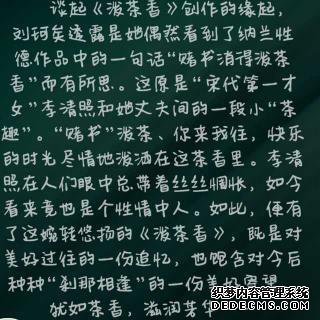 谈起《泼茶香》创作的缘起，
刘珂矣透露是她偶然看到了纳兰性
德作品中的一句话“赌书消得泼茶
香”而有所思。这原是“宋代第一才
女”李清照和她丈夫间的一段小“茶
趣”。“赌书”泼茶、你来我往，快乐
的时光尽情地泼洒在这茶香里。李清
照在人们眼中总带着丝丝惆怅，如今
看来竟也是个性情中人。如此，便有
了这婉转悠扬的《泼茶香》，既是对
美好过往的一份追忆，也饱含对今后
种种“刹那相逢”的一份美好愿望
犹如茶香，滋润芳华
织梦内容管理系统